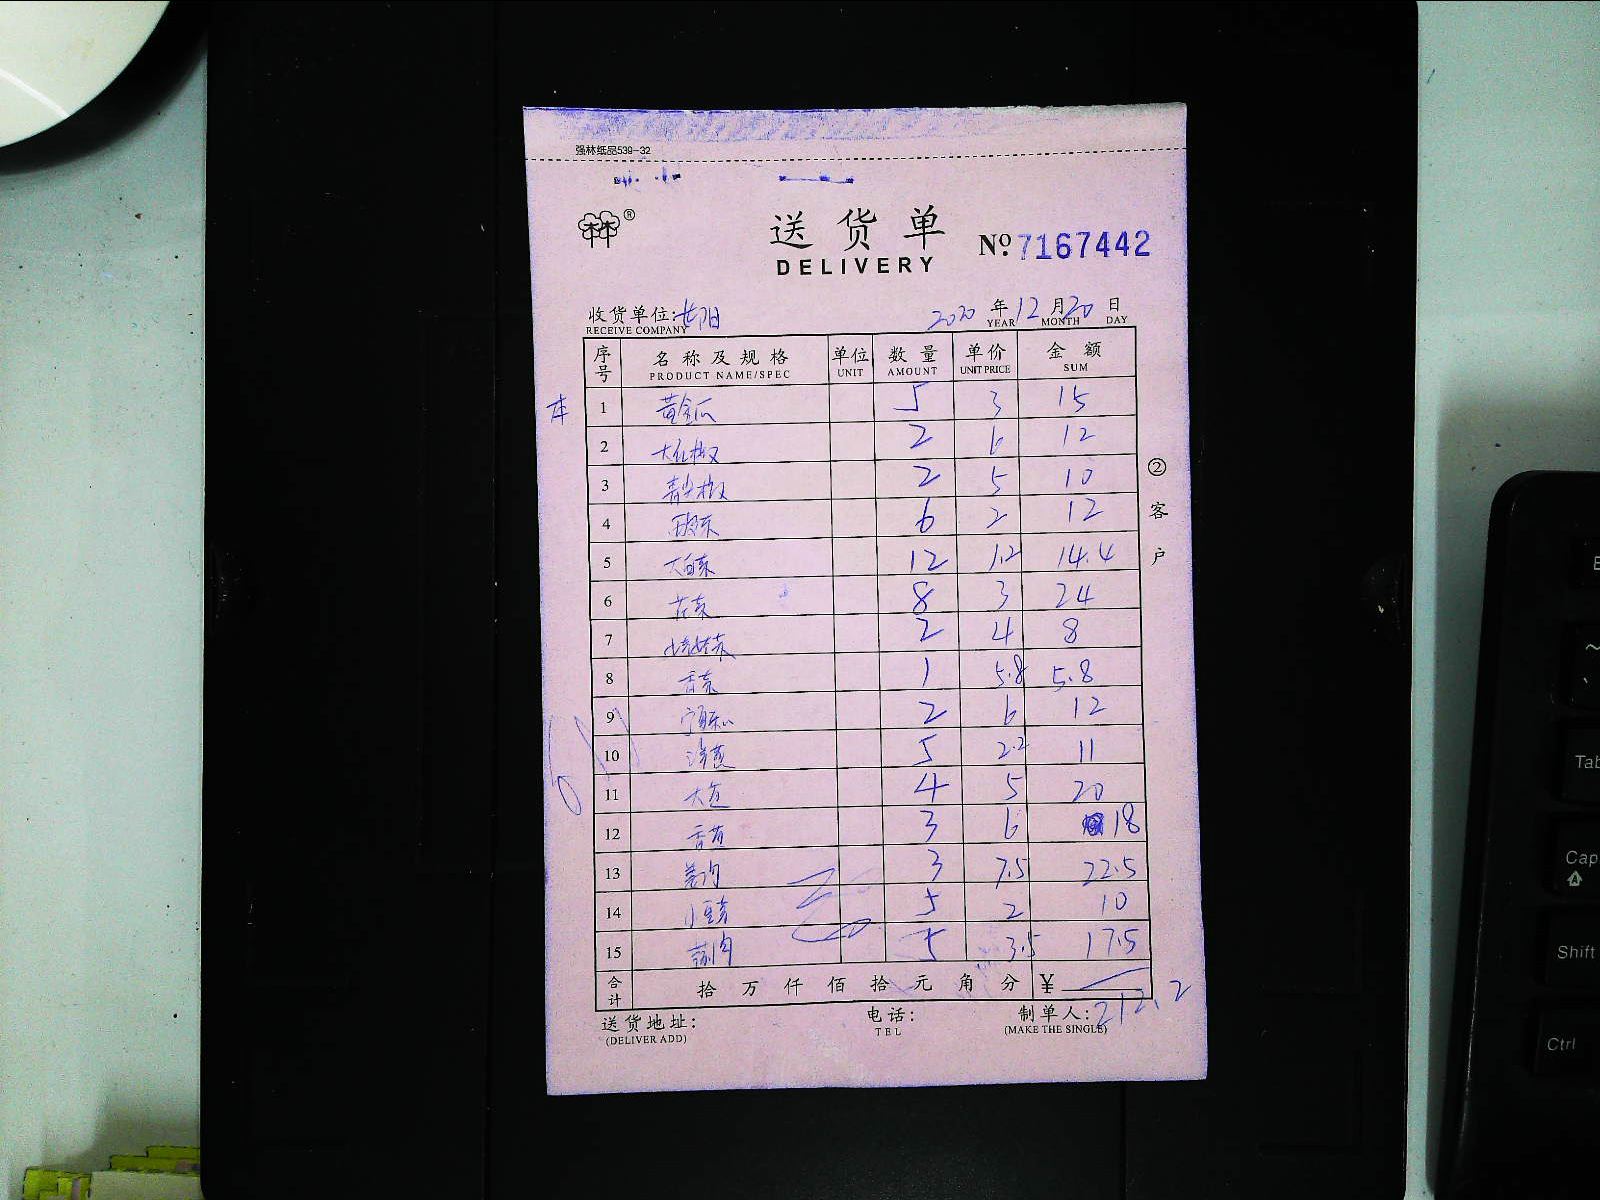 强林纸品539-32
®
送货单
DELIVERY
No 7167442
收货单位:长阳
RECEIVE COMPANY
2020 年 12 月 20 日
YEAR MONTH DAY
序号 名称及规格 单位 数量 单价 金额
PRODUCT NAME/SPEC UNIT AMOUNT UNIT PRICE SUM
本 1 黄金瓜 5 3 15
2 大红椒 2 6 12
3 青尖椒 2 5 10
4 6 2 12
5 大白菜 12 1.2 14.4
6 花菜 8 3 24
7 2 4 8
8 香菜 1 5.8 5.8
9 2 6 12
10 洋葱 5 2.2 11
11 大 4 5 20
12 香 3 6 18
13 姜肉 3 7.5 22.5
14 小豆芽 5 2 10
15 蒜肉 5 3.5 17.5
合计 拾 万 仟 佰 拾 元 角 分 ¥
212.2
送货地址: 电话: 制单人:
(DELIVER ADD) TEL (MAKE THE SINGLE)
② 客户
Tab
Cap
Shift
Ctrl